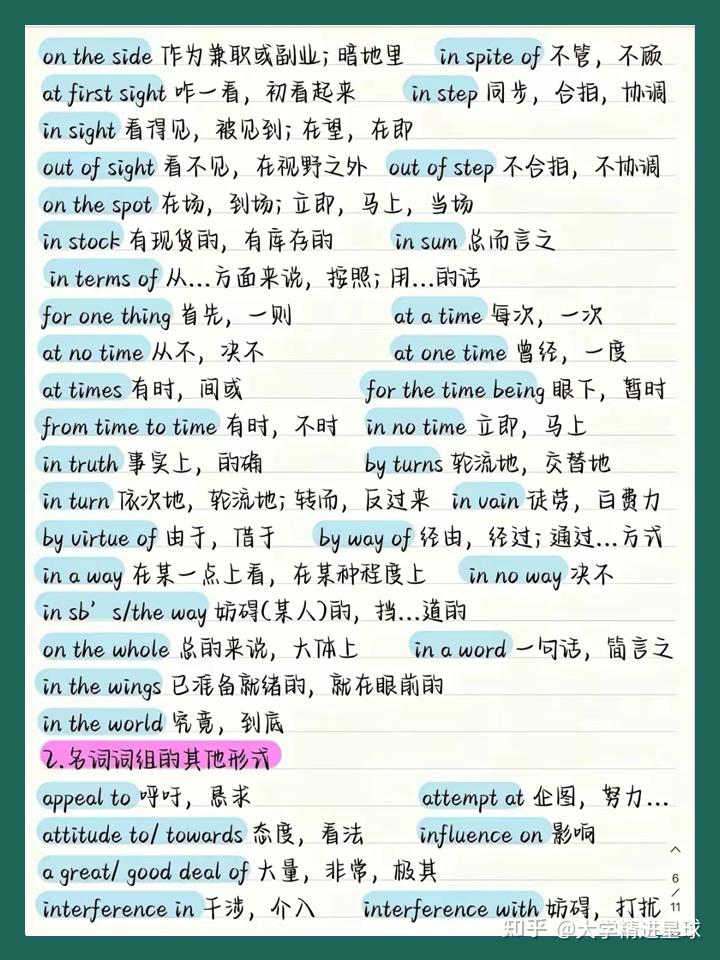 on the side 作为兼职或副业；暗地里 in spite of 不管，不顾
at first sight 咋一看，初看起来 in step 同步，合拍，协调
in sight 看得见，被见到；在望，在即
out of sight 看不见，在视野之外 out of step 不合拍，不协调
on the spot 在场，到场；立即，马上，当场
in stock 有现货的，有库存的 in sum 总而言之
in terms of 从…方面来说，按照；用…的话
for one thing 首先，一则 at a time 每次，一次
at no time 从不，决不 at one time 曾经，一度
at times 有时，间或 for the time being 眼下，暂时
from time to time 有时，不时 in no time 立即，马上
in truth 事实上，的确 by turns 轮流地，交替地
in turn 依次地，轮流地；转而，反过来 in vain 徒劳，白费力
by virtue of 由于，借于 by way of 经由，经过；通过…方式
in a way 在某一点上看，在某种程度上 in no way 决不
in sb’s/the way 妨碍(某人)的，挡…道的
on the whole 总的来说，大体上 in a word 一句话，简言之
in the wings 已准备就绪的，就在眼前的
in the world 究竟，到底
2.名词词组的其他形式
appeal to 呼吁，恳求 attempt at 企图，努力…
attitude to/ towards 态度，看法 influence on 影响
a great/ good deal of 大量，非常，极其
interference in 干涉，介入 interference with 妨碍，打扰
6/11
知乎 @大学精进星球